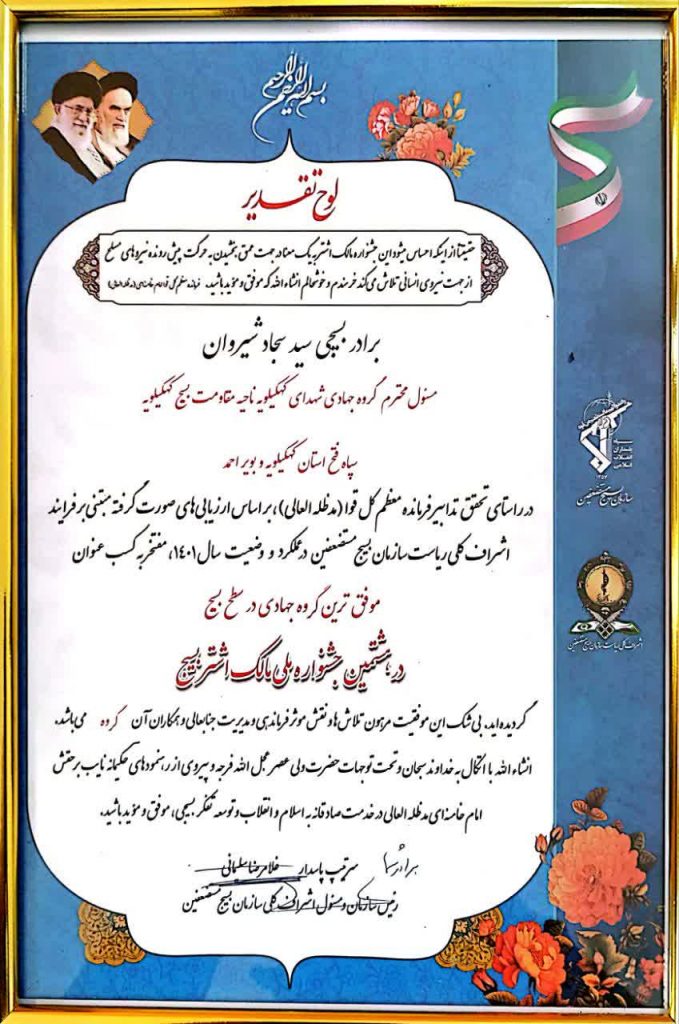 بسم الله الرحمن الرحیم
لوح تقدیر
حقیقتا از اینکه احساس میشود این جشنواره مالک اشتر به یک معنا در جهت عمق بخشیدن به حرکت پیش رونده نیروهای مسلح
از جهت نیروی انسانی تلاش می‌کند خرسندم و خوشحالم انشاء الله که موفق و مؤید باشید.
برادر بسیجی سید سجاد شیروان
مسئول محترم گروه جهادی شهدای کهگیلویه ناحیه مقاومت بسیج کهگیلویه
سپاه فتح استان کهگیلویه و بویر احمد
در راستای تحقق تدابیر فرمانده معظم کل قوا (مدظله العالی)، بر اساس ارزیابی های صورت گرفته مبتنی بر فرایند
اشراف کلی ریاست سازمان بسیج مستضعفین در عملکرد و وضعیت سال ۱۴۰۱، مفتخر به کسب عنوان
موفق ترین گروه جهادی در سطح بسیج
در هشتمین جشنواره ملی مالک اشتر بسیج
گردیده اید. بی شک این موفقیت مرهون تلاش ها و نقش موثر فرماندهی و مدیریت جنابعالی و همکاران آن گروه می باشد.
انشاء الله با اتکال به خداوند سبحان و تحت توجهات حضرت ولی عصر عجل الله فرجه و پیروی از رهنمودهای حکیمانه نایب برحقش
امام خامنه ای مدظله العالی در خدمت صادقانه به اسلام و انقلاب و توسعه تفکر بسیجی، موفق و مؤید باشید.
سرتیپ پاسدار غلامرضا سلیمانی
رئیس سازمان و مسئول اشراف کلی سازمان بسیج مستضعفین
سپاه
پاسداران
انقلاب
اسلامی
سازمان بسیج مستضعفین
اشراف کلی ریاست سازمان بسیج مستضعفین